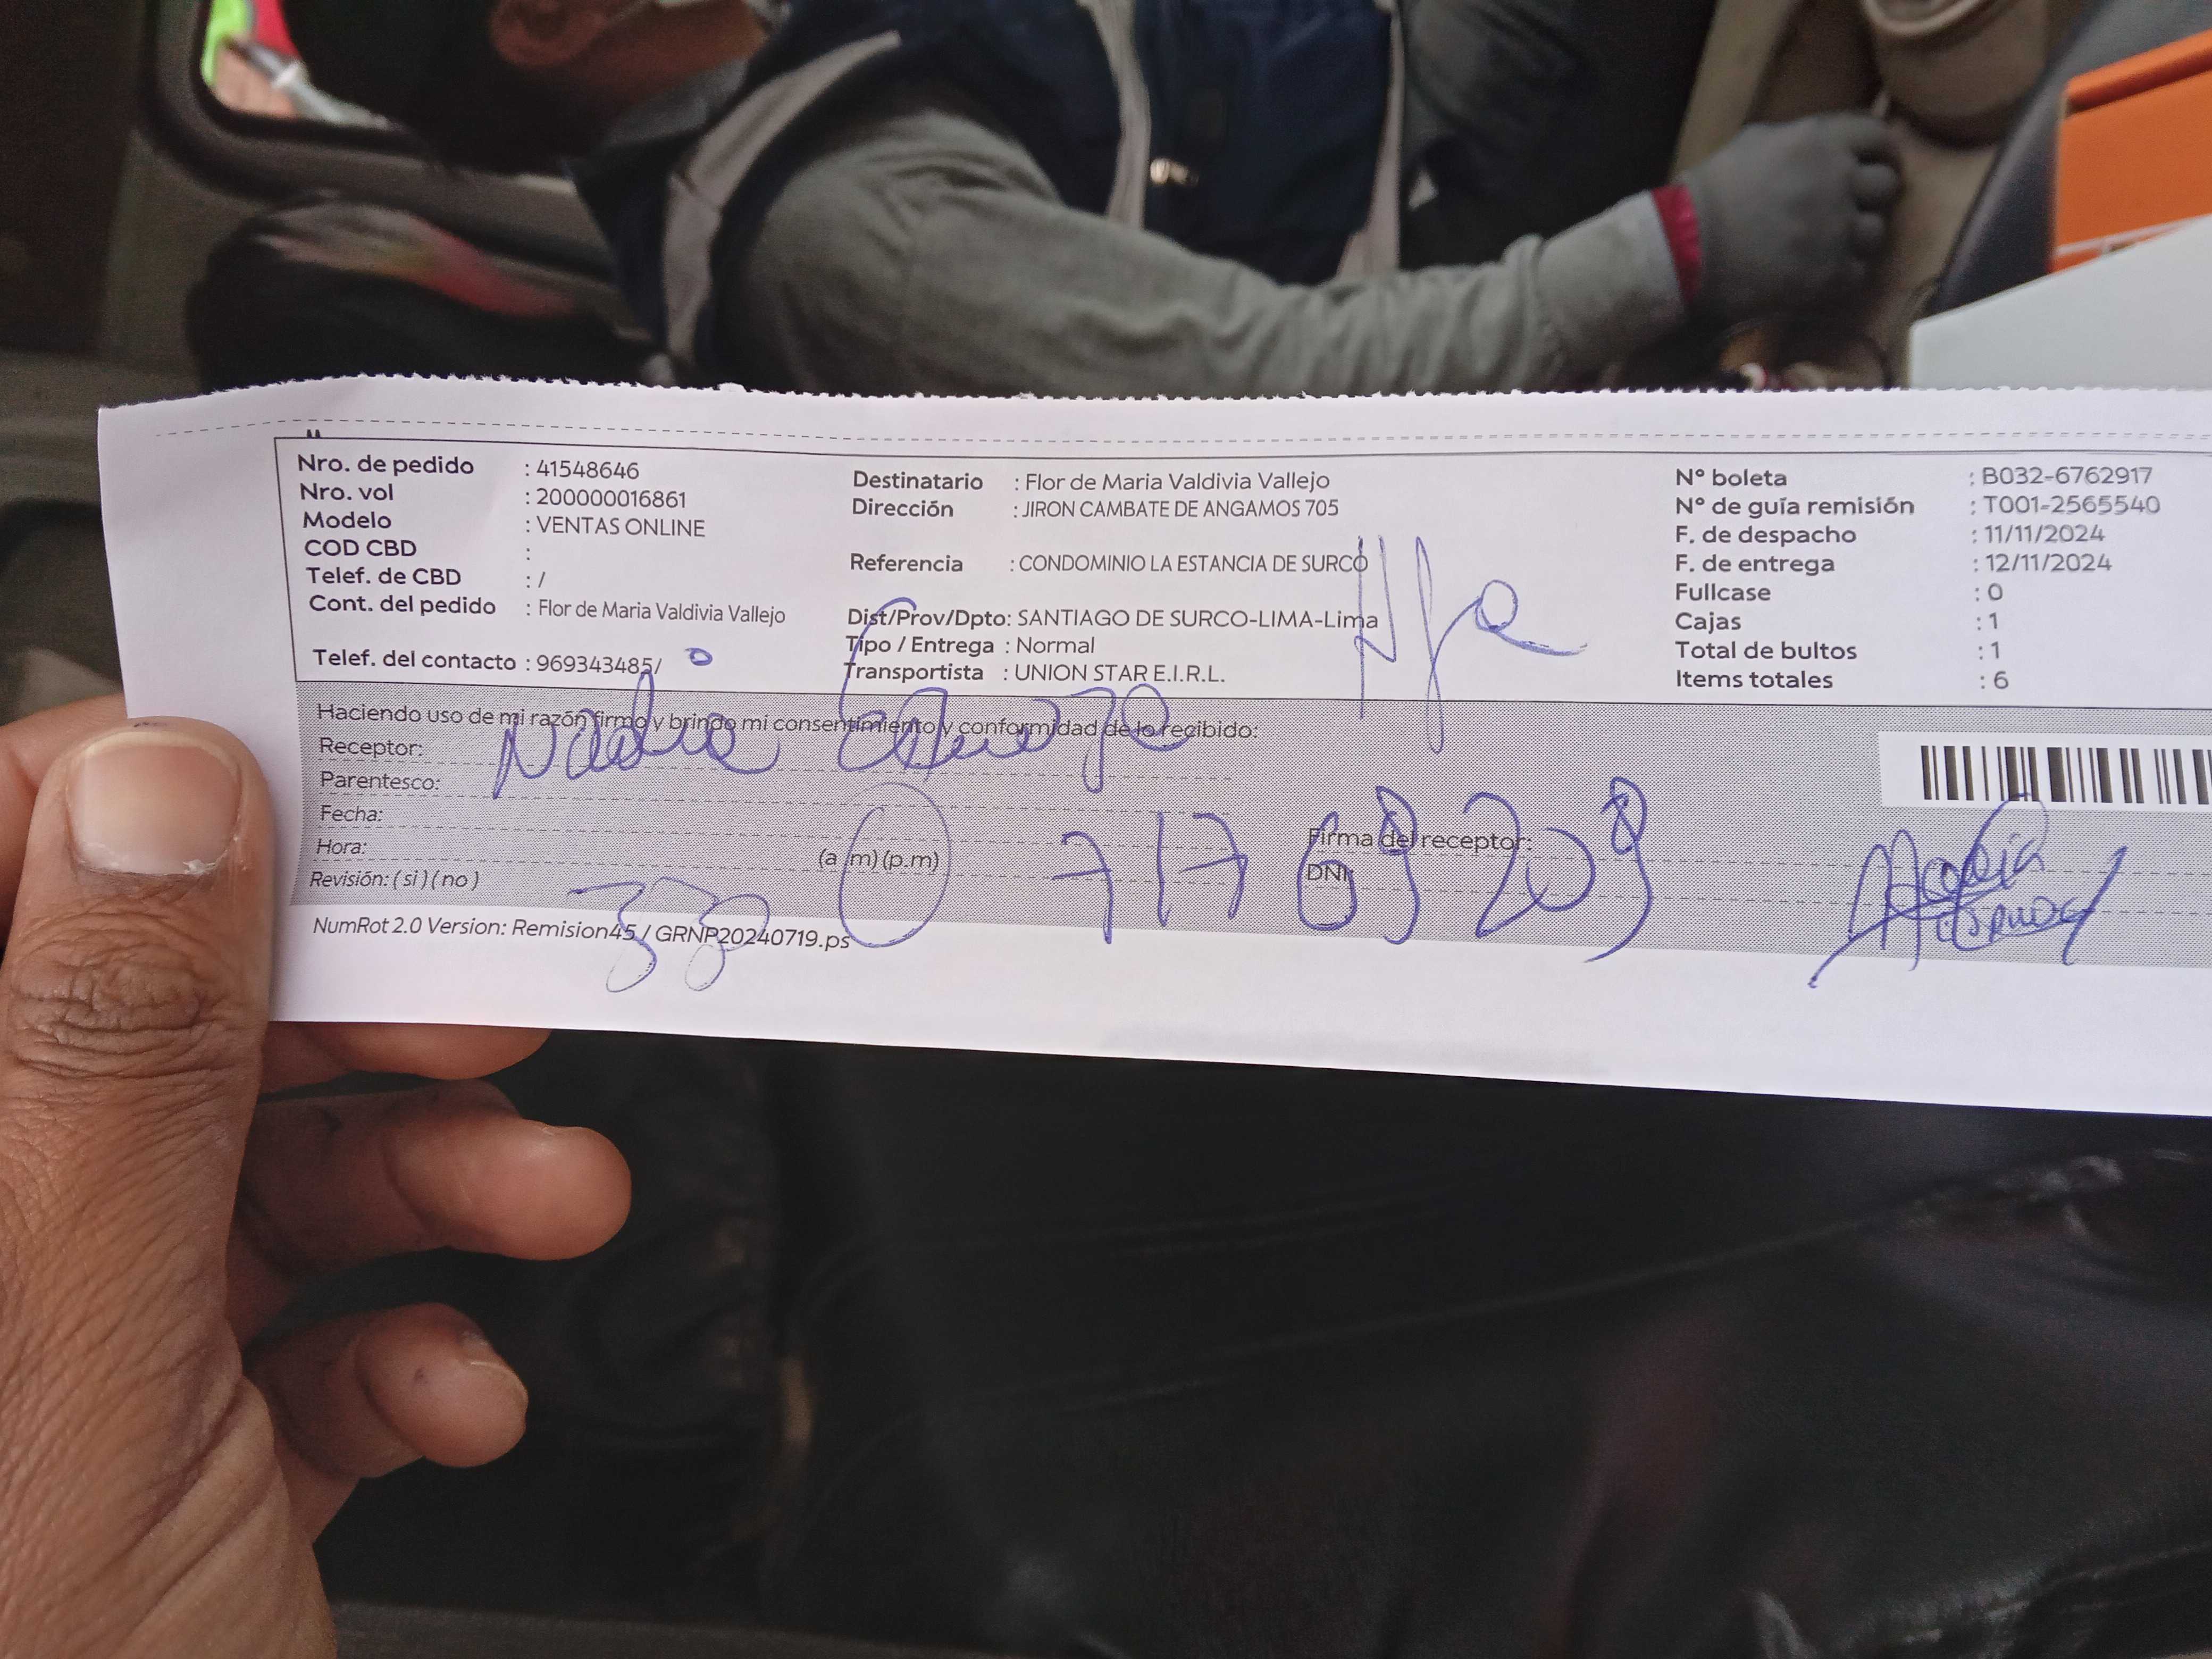 Nro. de pedido : 41548646
Nro. vol : 200000016861
Modelo : VENTAS ONLINE
COD CBD :
Telef. de CBD : /
Cont. del pedido : Flor de Maria Valdivia Vallejo
Telef. del contacto : 969343485/
Destinatario : Flor de Maria Valdivia Vallejo
Dirección : JIRON CAMBATE DE ANGAMOS 705
Referencia : CONDOMINIO LA ESTANCIA DE SURCO
Dist/Prov/Dpto: SANTIAGO DE SURCO-LIMA-Lima
Tipo / Entrega : Normal
Transportista : UNION STAR E.I.R.L.
N° boleta : B032-6762917
N° de guía remisión : T001-2565540
F. de despacho : 11/11/2024
F. de entrega : 12/11/2024
Fullcase : 0
Cajas : 1
Total de bultos : 1
Items totales : 6
Haciendo uso de mi razón firmo y brindo mi consentimiento y conformidad de lo recibido:
Receptor: Nadia
Parentesco:
Fecha:
Hora: (a m) (p.m)
Revisión: ( si ) ( no )
Firma del receptor:
DNI: 71769209
NumRot 2.0 Version: Remision45 / GRNP20240719.ps